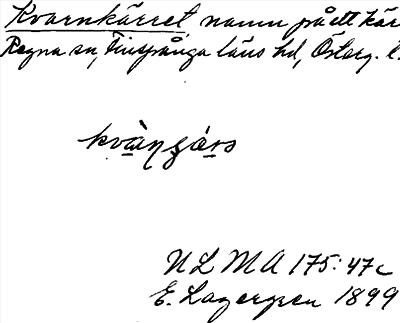 Kvarnkärret, namn på ett kär
Regna sn, Finspånga läns hd, Österg. l.
kvàṇʂárs
NLMA 175:47c
E. Lagergren 1899